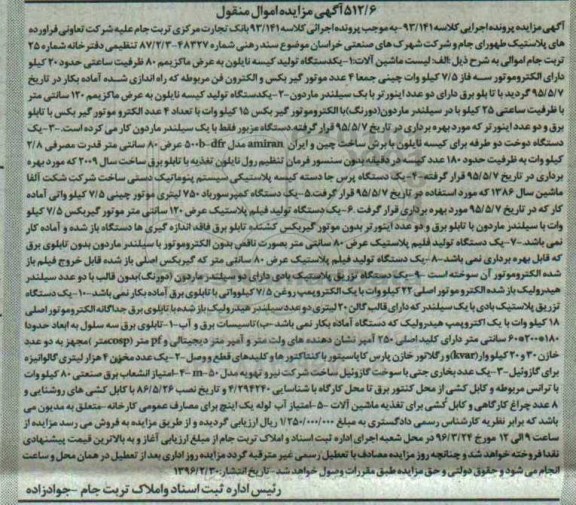 ۵۱۲/۶ آگهی مزایده اموال منقول
آگهی مزایده پرونده اجرایی کلاسه ۹۳/۱۴۱- به موجب پرونده اجرائی کلاسه ۹۳/۱۴۱ بانک تجارت مرکزی تربت جام علیه شرکت تعاونی فراورده
های پلاستیک طهورای جام و شرکت شهرک های صنعتی خراسان موضوع سند رهنی شماره ۴۸۳۲۷-۸۷/۲/۳ تنظیمی دفترخانه شماره ۲۵
تربت جام اموالی به شرح ذیل :الف: لیست ماشین آلات:۱-یکدستگاه تولید کیسه نایلون به عرض ماکزیمم ۸۰ ظرفیت ساعتی حدود ۲۰ کیلو
دارای الکتروموتور سه فاز ۷/۵ کیلو وات چینی جمعا ۴ عدد موتور گیر بکس و الکترون فن مربوطه که راه اندازی شده آماده بکار در تاریخ
۹۵/۵/۷ گردید با تابلو برق دارای دو عدد اینورتر با یک سیلندر ماردون -۲-یکدستگاه تولید کیسه نایلون به عرض ماکزیمم ۱۲۰ سانتی متر
با ظرفیت ساعتی ۲۵ کیلو با در سیلندر ماردون(دورنگ)با الکتروموتور گیر بکس ۱۵ کیلو وات با تعداد ۴ عدد الکترو موتور گیر بکس با تابلو
برق و دو عدد اینورتر که مورد بهره برداری در تاریخ ۹۵/۵/۷ قرار گرفته دستگاه مزبور فقط با یک سیلندر ماردون کار می کرده است.-۳-یک
دستگاه دوخت دو طرفه برای کیسه نایلون با برش ساخت چین و ایران amiran مدل ۵۰۰b-dfr عرض ۸۰ سانتی متر قدرت مصرفی ۲/۸
کیلو وات به ظرفیت حدود ۱۸۰ عدد کیسه در دقیقه بدون سنسور فرمان تنظیم رول نایلون تغذیه با تابلو برق ساخت سال ۲۰۰۹ که مورد بهره
برداری در تاریخ ۹۵/۵/۷ قرار گرفته-۴-یک دستگاه پرس جا دسته کیسه پلاستیکی سیستم پنوماتیک دستی ساخت شرکت شکت آلفا
ماشین سال ۱۳۸۶ که مورد استفاده در تاریخ ۹۵/۵/۷ قرار گرفت ۵-یک دستگاه کمپرسورباد ۷۵۰ لیتری موتور چینی ۷/۵ کیلو واتی آماده
کار که در تاریخ ۹۵/۵/۷ مورد بهره برداری قرار گرفت .۶-یک دستگاه تولید فیلم پلاستیک عرض ۱۲۰ سانتی متر موتور گیربکس ۷/۵ کیلو
وات با سیلندر ماردون با تابلو برق و دو عدد اینورتر بدون موتور گیربکس کشنده تابلو برق فاقد اندازه گیری ها دستگاه باز شده و آماده کار
نمی باشد.-۷-یک دستگاه تولید فلیم پلاستیک عرض ۸۰ سانتی متر بصورت ناقص بدون الکتروموتور با سیلندر ماردون بدون تابلوی برق
که قابل بهره برداری نمی باشد-۸-یک دستگاه تولید فیلم پلاستیک عرض ۸۰ سانتی متر که گیربکس اصلی باز شده قابل خروج فیلم باز
شده الکتروموتور آن سوخته است -۹-یک دستگاه تزریق پلاستیک بادی دارای دو سیلندر ماردون (دورنگ)بدون قالب با دو عدد سیلندر
هیدرولیک باز شده الکترو موتور اصلی ۲۲ کیلووات با یک الکتروپمپ روغن ۷/۵ کیلوواتی با تابلوی برق آماده بکار نمی باشد-۱۰-یک دستگاه
تزریق پلاستیک بادی با یک سیلندر که دارای قالب گالن ۲۰ لیتری دو عدد سیلندر هیدرولیک باز شده با تابلوی برق جداگانه الکتروموتور اصلی
۱۸ کیلو وات با یک اکتروپمپ هیدرولیک که دستگاه آماده بکار نمی باشد-ب) تاسیسات برق و آب-۱-تابلوی برق سه سلول به ابعاد حدودا
۱۸۰*۲۰۰*۶۰ سانتی متر دارای کلید اصلی ۲۵۰ آمپر نشان دهنده های ولت متر و آمپر متر دیجیتالی و pf متر (cosp متر )مجهز به دو عدد
خازن ۳۰ و ۲۰ کیلو وار(kvar) و رگلاتور خازن پارس کاپاسیتور با کنتاکتور ها و کلیدهای قطع و وصل -۲-یک عدد مخزن ۴ هزار لیتری گالوانیزه
برای گازوئیل-۳-یک عدد بخاری جتی با سوخت گازوئیل ساخت شرکت نیرو تهویه مدل m-۵۰ -۴-امتیاز انشعاب برق صنعتی ۸۰ کیلو وات
با ترانس مربوطه و کابل کشی از محل کنتور برق تا محل کارگاه با شناسایی ۴/۲۹۴۲۴۰ و تاریخ نصب ۸۶/۵/۲۶ با کابل کشی های روشنایی و
۸ عدد چراغ کارگاهی و کابل کشی برای تغذیه ماشین آلات -۵-امتیاز آب لوله یک اینچ برای مصارف عمومی کارخانه-متعلق به مدیون می
باشد که برابر نظریه کارشناس رسمی دادگستری به مبلغ ۱/۲۵۰/۰۰۰/۰۰۰ ریال ارزیابی گردیده و از طریق مزایده به فروش می رسد مزایده از
ساعت ۹ الی ۱۲ مورخ ۹۶/۳/۲۴ در محل شعبه اجرای اداره ثبت اسناد و املاک تربت جام از مبلغ ارزیابی آغاز و به بالاترین قیمت پیشنهادی
نقدا فروخته خواهد شد و چنانچه روز مزایده مصادف با تعطیل رسمی غیر مترقبه گردد مزایده روز اداری بعد از تعطیل در همان محل و ساعت
انجام می شود و حقوق دولتی و حق مزایده طبق مقررات وصول خواهد شد.- تاریخ انتشار:۱۳۹۶/۲/۳۰
رئیس اداره ثبت اسناد و املاک تربت جام - جوادزاده